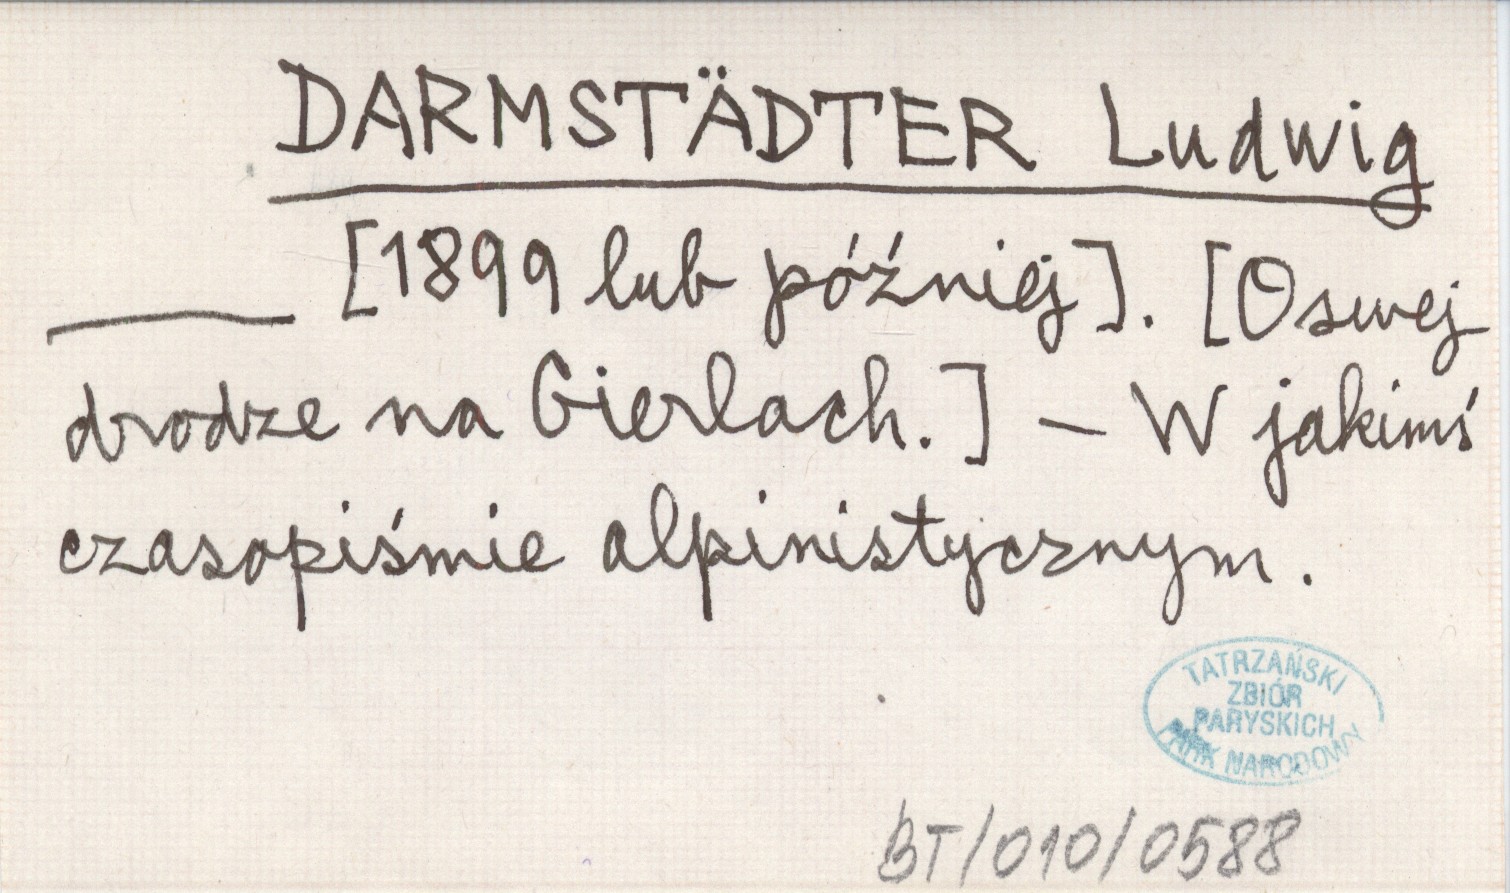 DARMSTÄDTER Ludwig
[1899 lub później]. [O swej
drodze na Gierlach.] — W jakimś
czasopiśmie alpinistycznym.
TATRZAŃSKI
ZBIÓR
PARYSKICH
PARK NARODOWY
BT/010/0588